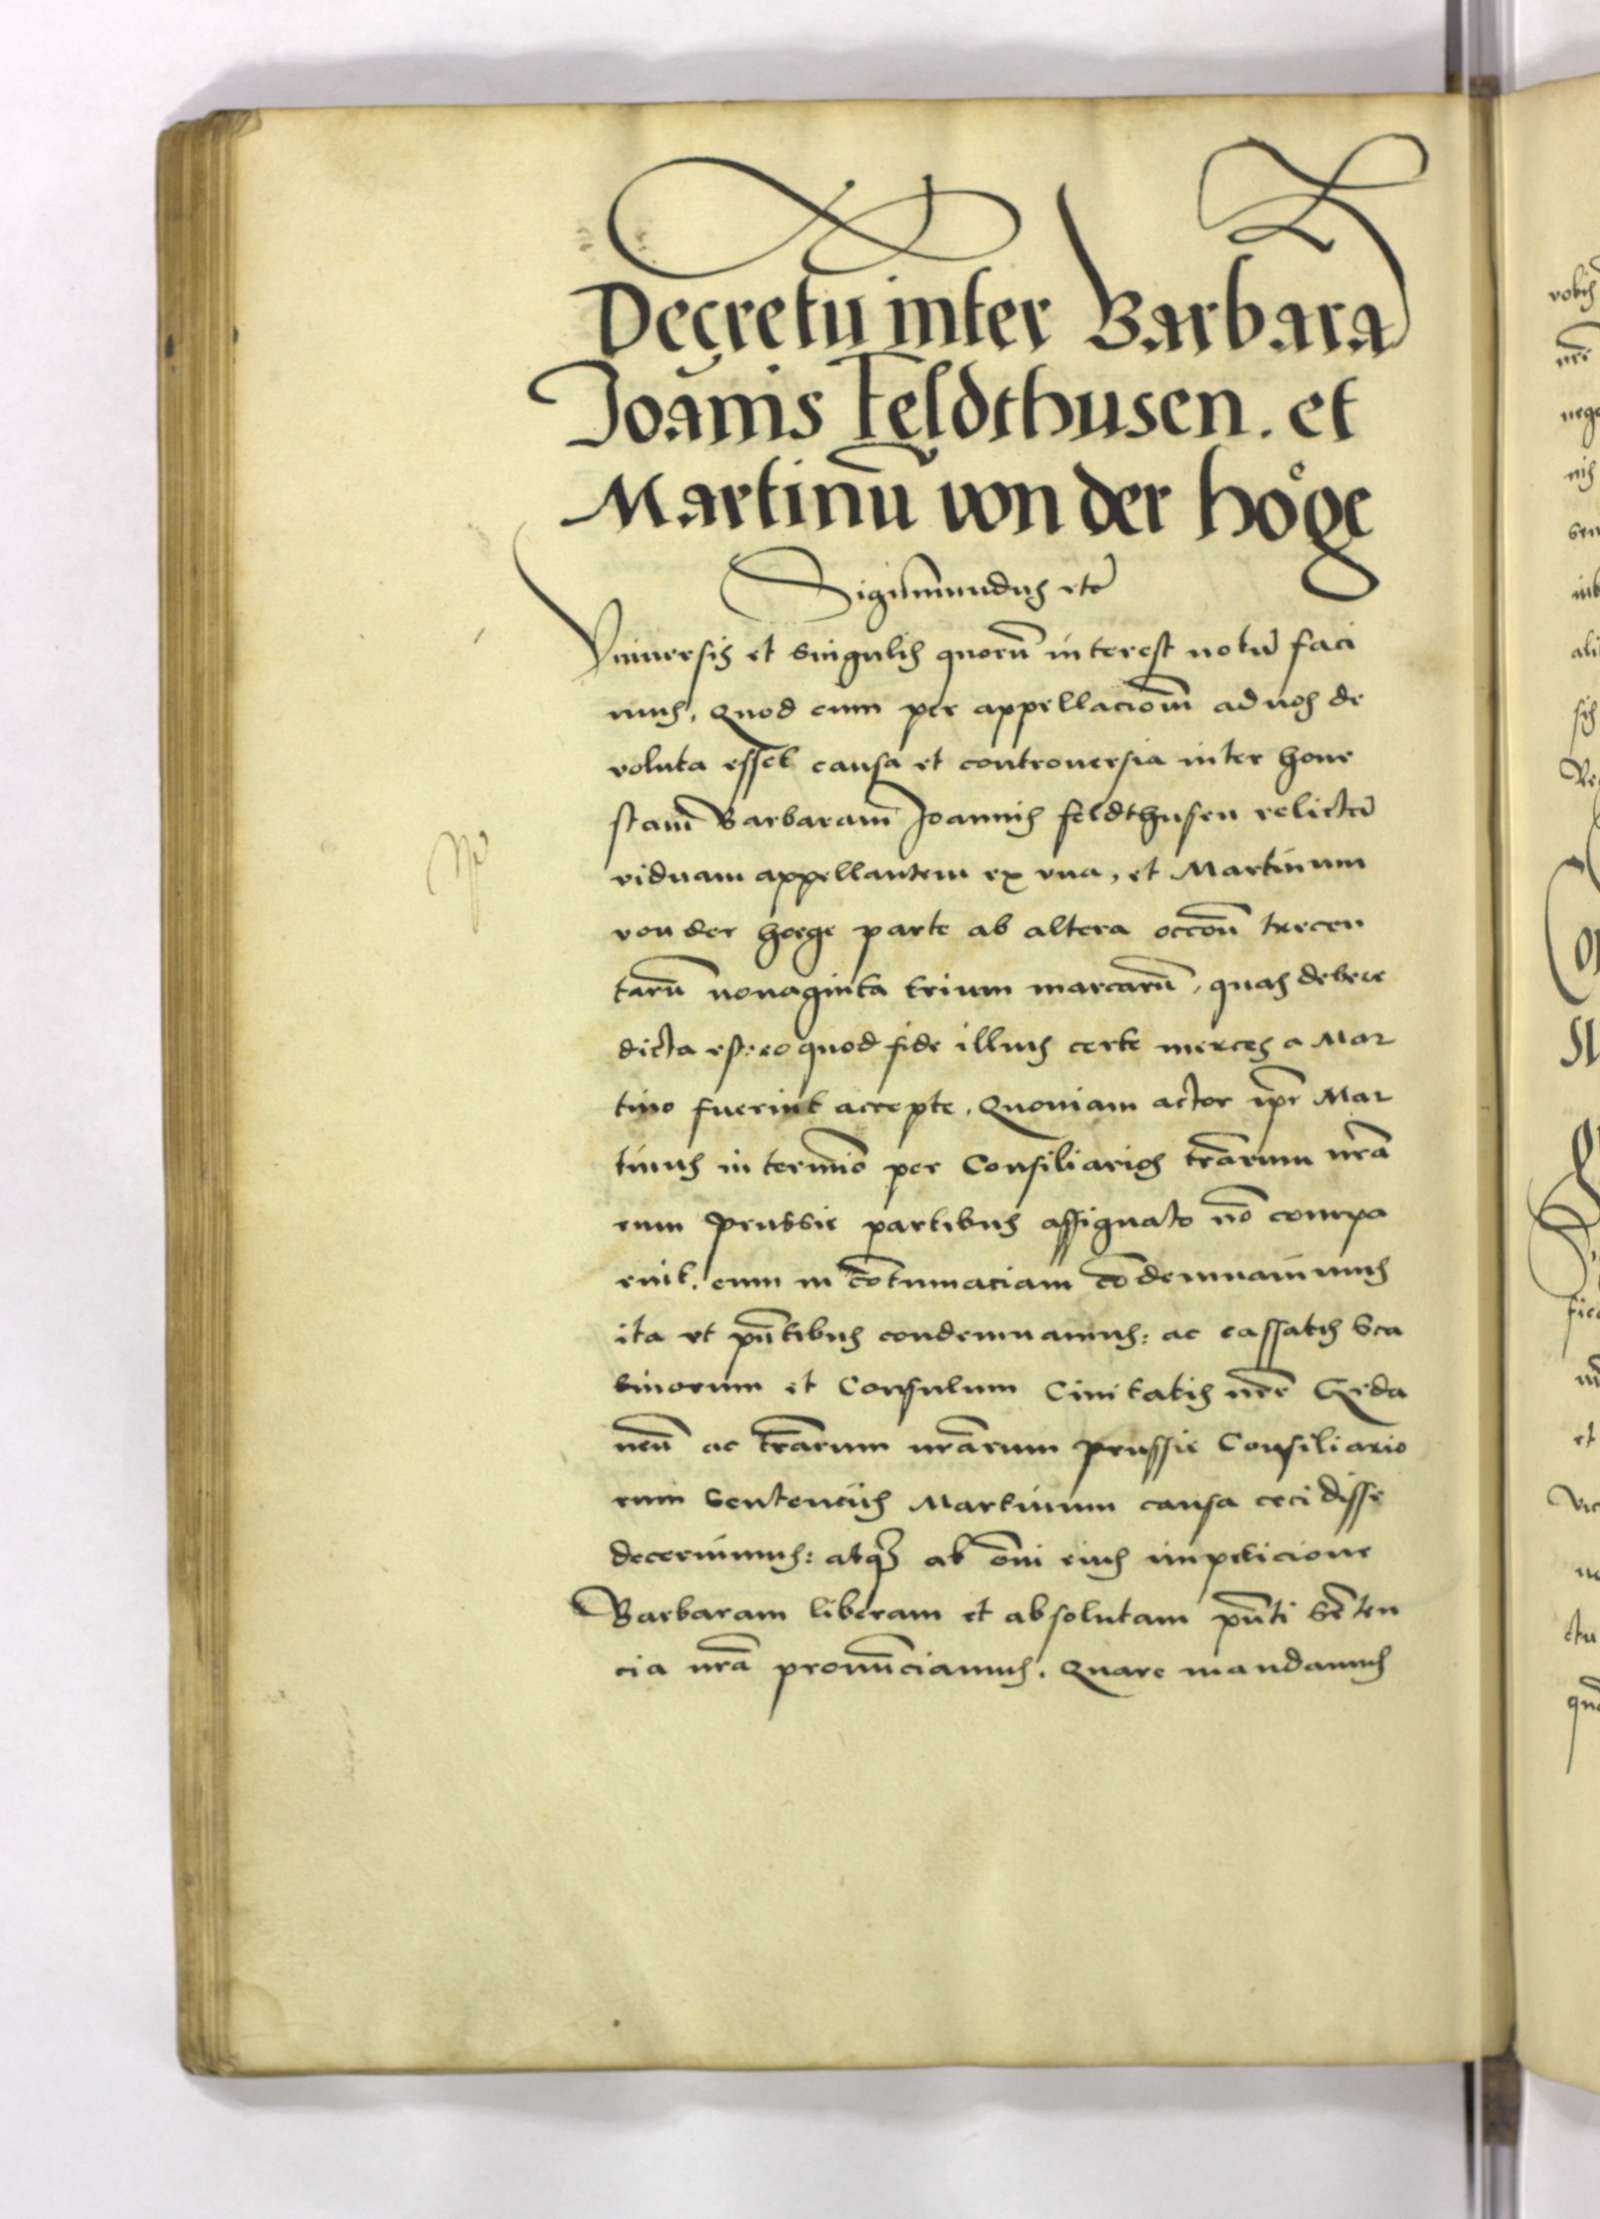 Decretu inter Barbara
Joānis Feldthusen. et
Martinū von der hoͤge
Sigismundus etc
Vniuersis et singulis quorū interest notū faci
mus, Quod cum per appellacionē ad nos de
voluta esset causa et controuersia inter hone
stam Barbaram Joannis feldthusen relictā
viduam appellantem ex vna, et Martinum
von der hoege parte ab altera occōne trecen
tarū nonaginta trium marcarū, quas debere
dicta est: eo quod fide illius certe merces a Mar
tino fuerint accepte, Quoniam actor ipse Mar
tinus in termīo per Consiliarios trārum nrā
rum Prussie partibus assignato nō compa
ruit, eum in cōtumaciam cōdemnauimus
ita vt pn̄tibus condemnamus: ac cassatis Sca
binorum et Consulum Ciuitatis nr̄e Geda
nen̄ ac trārum nrārum prussie Consiliario
rum Sentencijs Martinum causa cecidisse
decernimus: atqȝ ab ōni eius impeticione
Barbaram liberam et absolutam pn̄ti Sēten
cia nrā pronūciamus. Quare mandamus